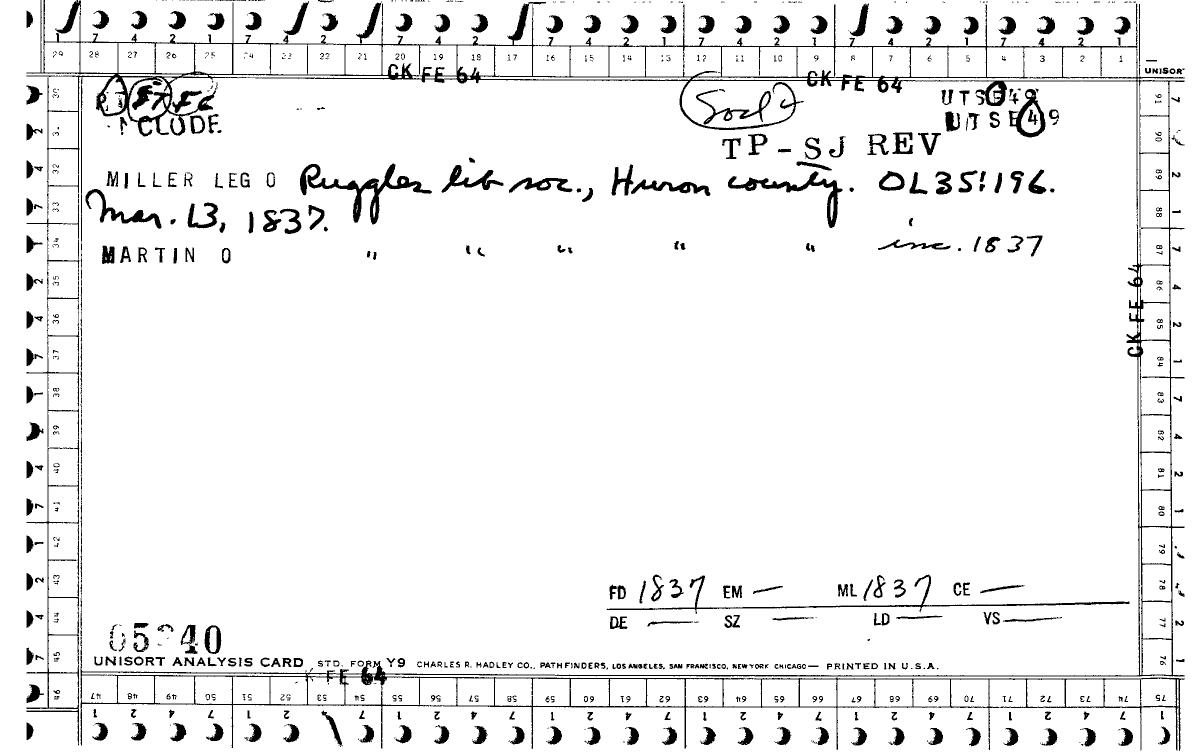 7 4 2 1 7 4 2 1 7 4 2 1 7 4 2 1 7 4 2 1 7 4 2 1 7 4 2 1
29 28 27 26 25 24 23 22 21 20 19 18 17 16 15 14 13 12 11 10 9 8 7 6 5 4 3 2 1
CK FE 64 CK FE 64 UNISORT
Socl 4 UTSE49
NCLUDE UTSE49
TP-SJ REV
MILLER LEG O Ruggles lib soc., Huron county. OL35:196.
Mar. 13, 1837.
MARTIN O " " " " " inc. 1837
CK FE 64
FD 1837 EM — ML 1837 CE —
DE — SZ LD — VS —
40
UNISORT ANALYSIS CARD STD. FORM Y9 CHARLES R. HADLEY CO., PATHFINDERS, LOS ANGELES, SAN FRANCISCO, NEW YORK CHICAGO— PRINTED IN U.S.A.
K FE 64
46 47 48 49 50 51 52 53 54 55 56 57 58 59 60 61 62 63 64 65 66 67 68 69 70 71 72 73 74 75
1 2 4 7 1 2 4 7 1 2 4 7 1 2 4 7 1 2 4 7 1 2 4 7 1 2 4 7